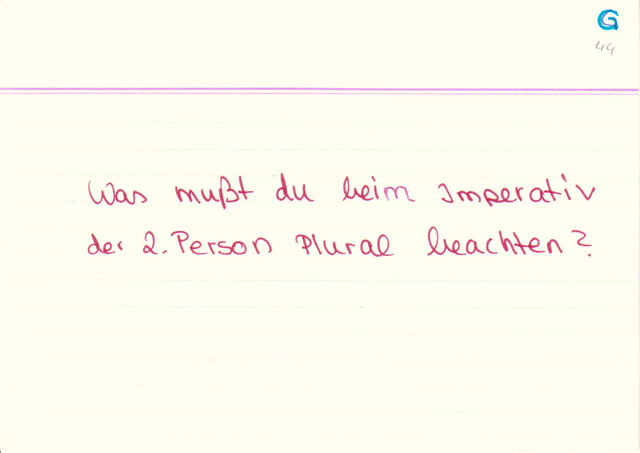 G
44
Was mußt du beim Imperativ
der 2. Person Plural beachten?